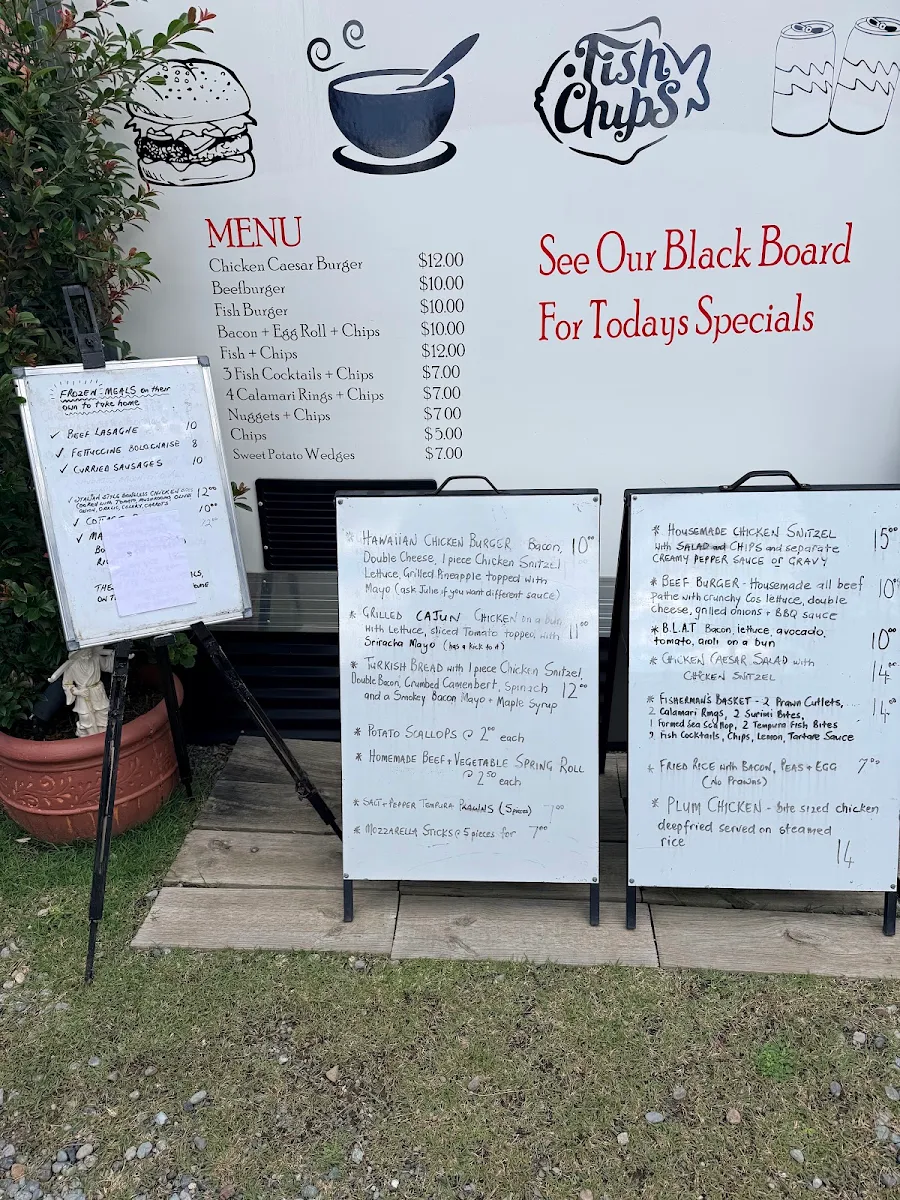 Fish
Chips
MENU
Chicken Caesar Burger $12.00
Beefburger $10.00
Fish Burger $10.00
Bacon + Egg Roll + Chips $10.00
Fish + Chips $12.00
3 Fish Cocktails + Chips $7.00
4 Calamari Rings + Chips $7.00
Nuggets + Chips $7.00
Chips $5.00
Sweet Potato Wedges $7.00
See Our Black Board
For Todays Specials
FROZEN MEALS on their
own to take home
✓ BEEF LASAGNE 10
✓ FETTUCCINE BOLOGNAISE 8
✓ CURRIED SAUSAGES 10
✓ ITALIAN STYLE BONELESS CHICKEN 12⁰⁰
COOKED WITH TOMATO, MUSHROOMS, OLIVES
ONION, GARLIC, CELERY, CARROTS 10⁰⁰
* HAWAIIAN CHICKEN BURGER Bacon, 10⁰⁰
Double Cheese, 1 piece Chicken Snitzel
Lettuce, Grilled Pineapple topped with
Mayo (ask Julie if you want different sauce)
* GRILLED CAJUN CHICKEN on a bun 11⁰⁰
with Lettuce, sliced Tomato topped with
Sriracha Mayo (has a kick to it)
* TURKISH BREAD with 1 piece Chicken Snitzel,
Double Bacon, Crumbed Camenbert, Spinach 12⁰⁰
and a Smokey Bacon Mayo + Maple Syrup
* POTATO SCALLOPS @ 2⁰⁰ each
* HOMEMADE BEEF + VEGETABLE SPRING ROLL
@ 2⁵⁰ each
* SALT + PEPPER TEMPURA PRAWNS (5 pieces) 7⁰⁰
* MOZZARELLA STICKS @ 5 pieces for 7⁰⁰
* HOUSEMADE CHICKEN SNITZEL 15⁰⁰
with SALAD and CHIPS and separate
CREAMY PEPPER SAUCE or GRAVY
* BEEF BURGER - Housemade all beef 10⁰⁰
pattie with crunchy Cos lettuce, double
cheese, grilled onions + BBQ sauce
* B.L.A.T Bacon, lettuce, avocado, 10⁰⁰
tomato, aioli on a bun
* CHICKEN CAESAR SALAD with 14⁰⁰
CHICKEN SNITZEL
* FISHERMAN'S BASKET - 2 Prawn Cutlets, 14⁰⁰
2 Calamari Rings, 2 Surimi Bites,
1 Formed Sea Scallop, 2 Tempura Fish Bites
2 Fish Cocktails, Chips, Lemon, Tartare Sauce
* FRIED RICE with BACON, PEAS + EGG 7⁰⁰
(No Prawns)
* PLUM CHICKEN - bite sized chicken
deepfried served on steamed
rice 14